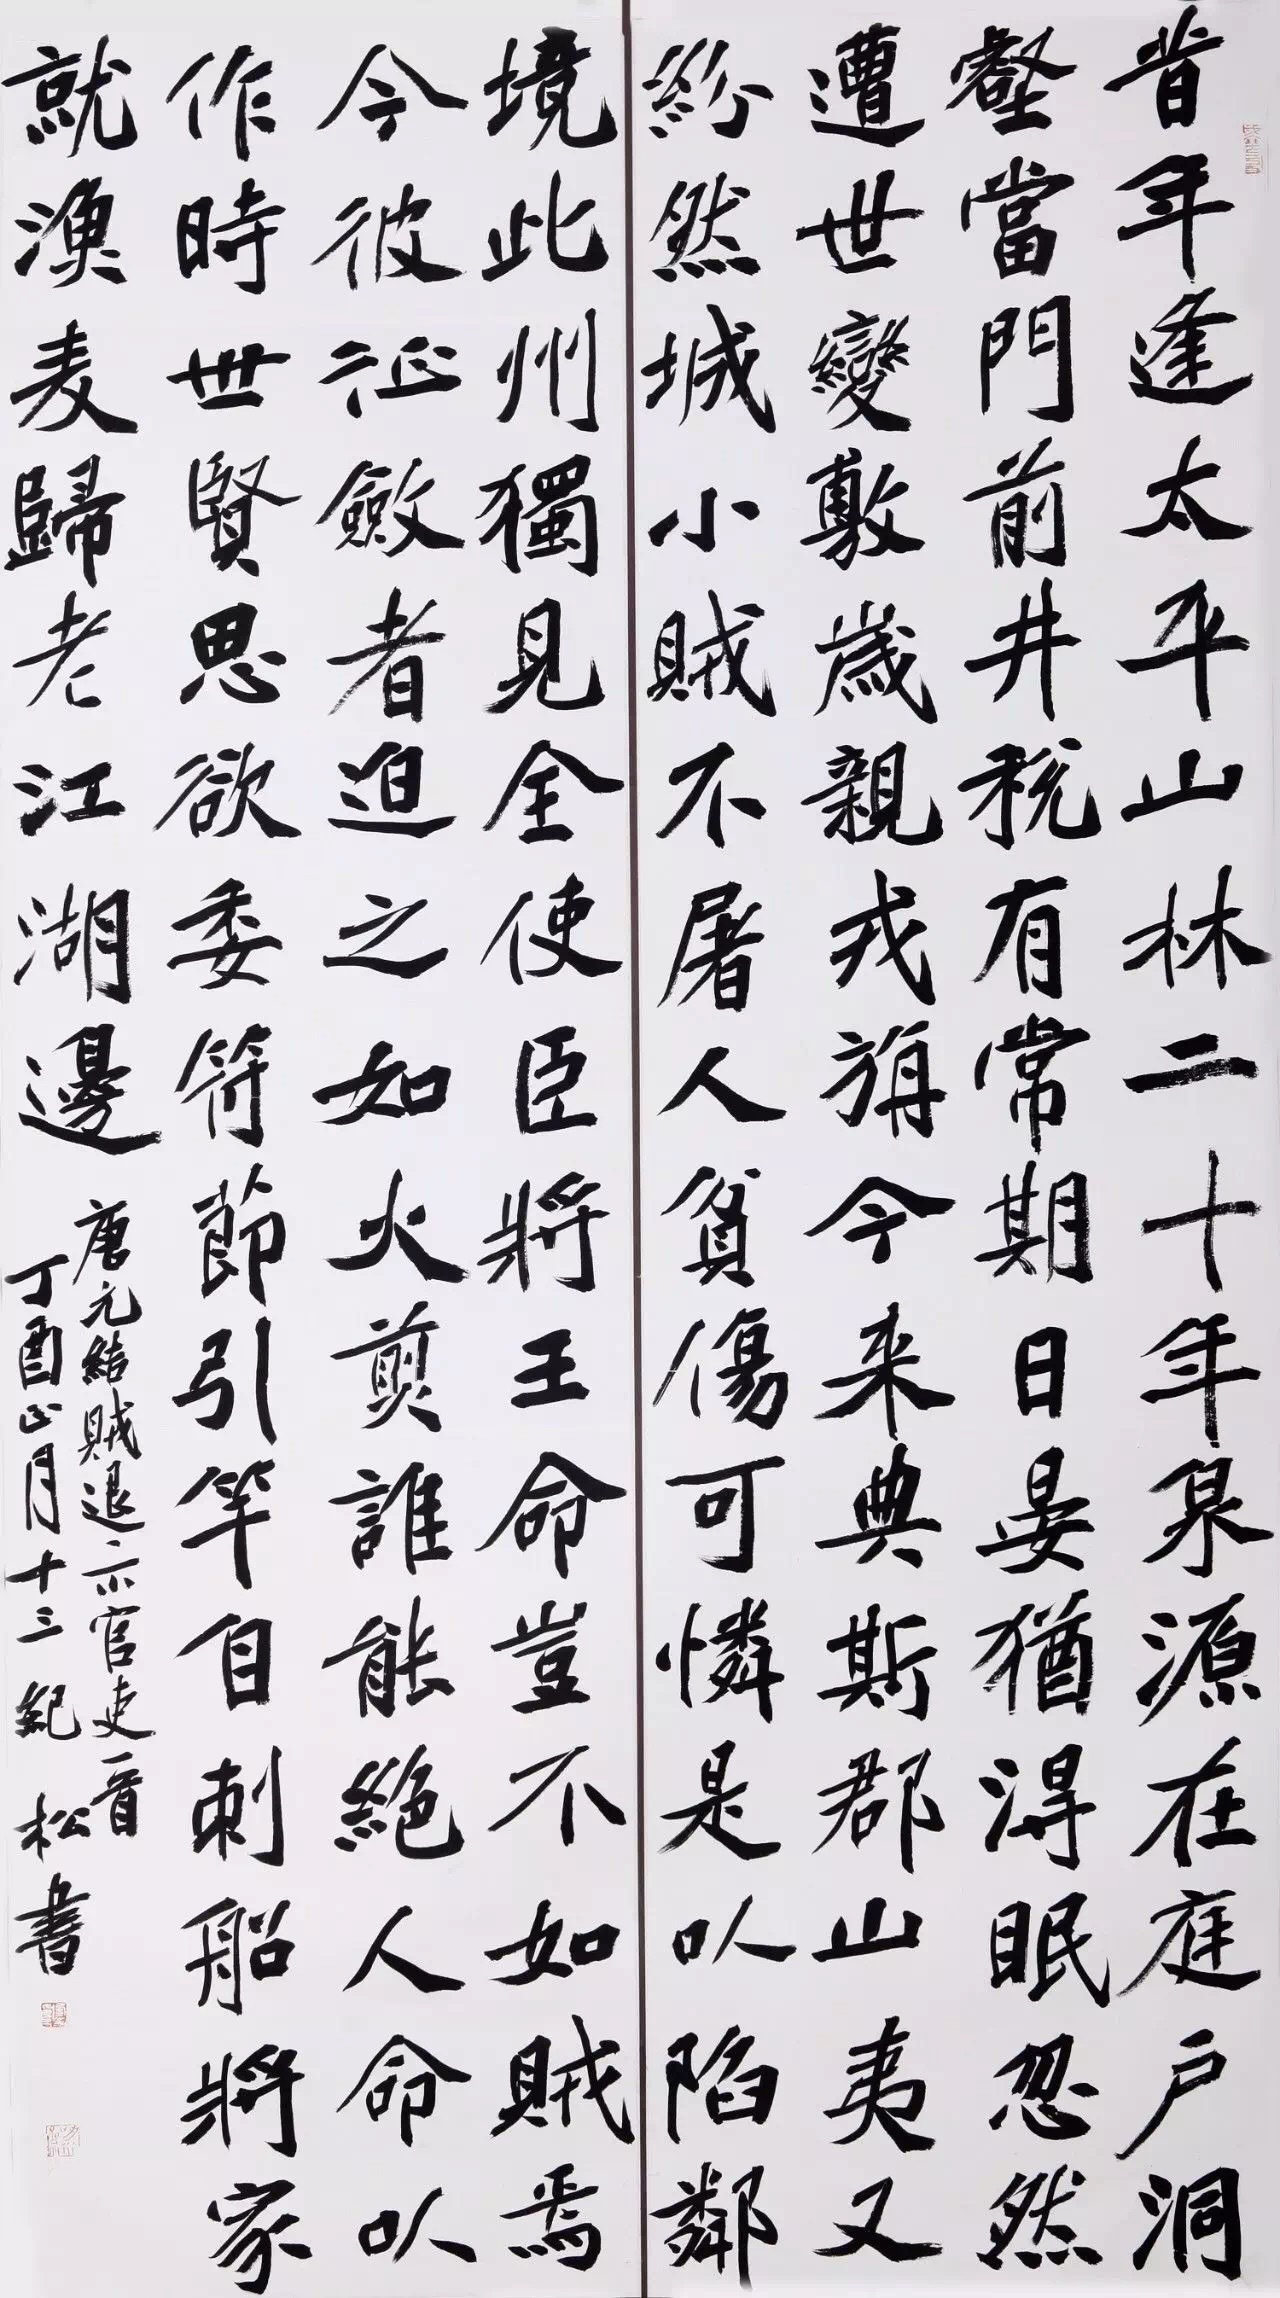 昔年逢太平山林二十年泉源在庭户洞
壑當門前井税有常期日晏猶得眠忽然
遭世變數歲親戎旃今来典斯郡山夷又
紛然城小賊不屠人貧傷可憐是以陷鄰
境此州獨見全使臣將王命豈不如賊焉
今彼征斂者迫之如火煎誰能絶人命以
作時世賢思欲委符節引竿自刺船將家
就漁麦歸老江湖邊
唐元結賊退示官吏一首
丁酉正月十三紀松書